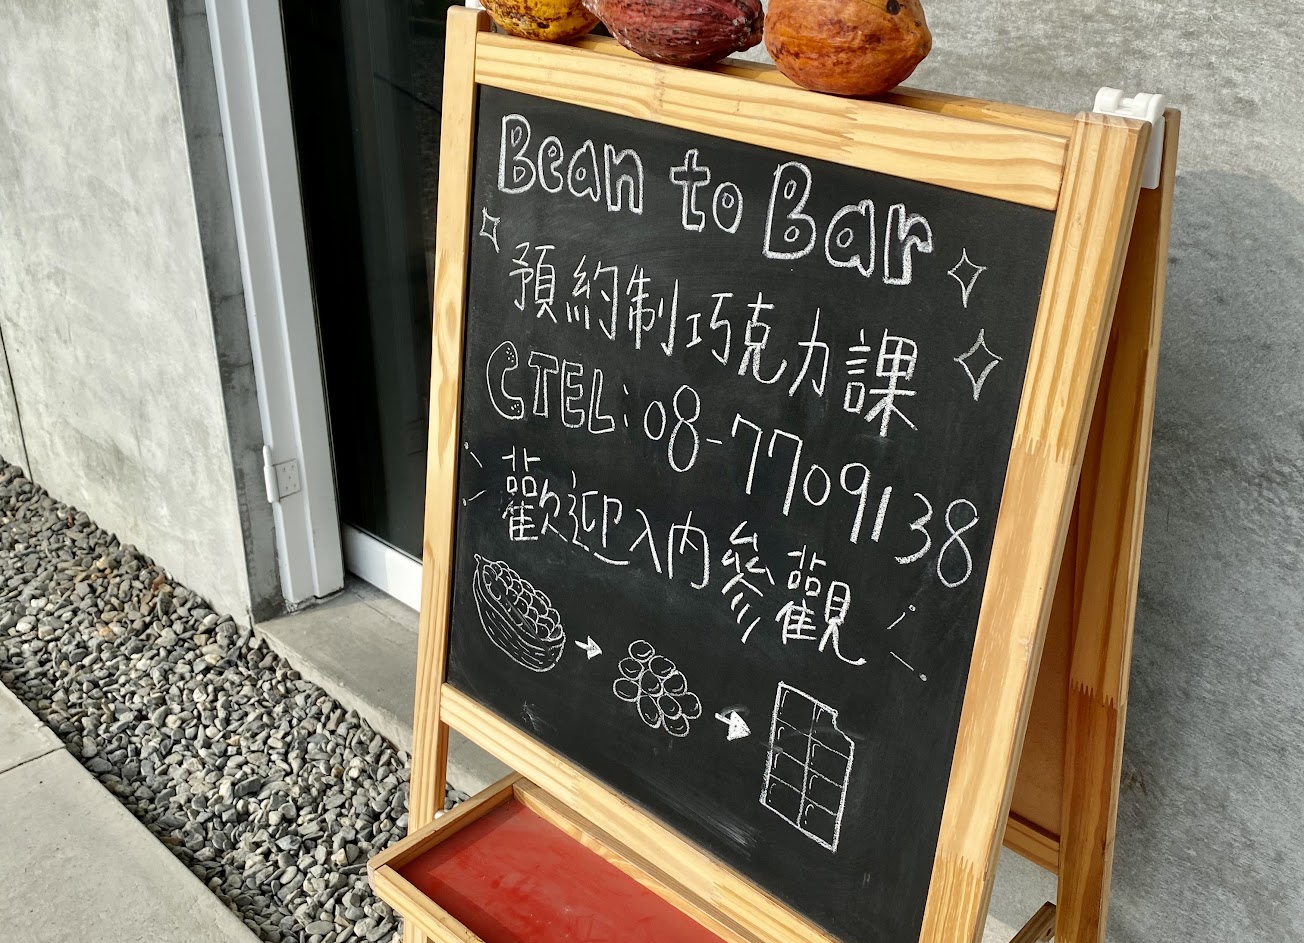 Bean to Bar
預約制巧克力課
TEL: 08-7709138
歡迎入內參觀